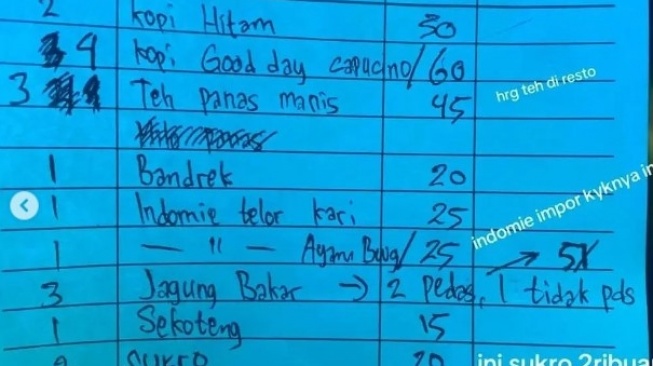 2 Kopi Hitam 30
4 Kopi Good day capucino/ 60
3 Teh panas manis 45
hrg teh di resto
1 Bandrek 20
1 Indomie telor kari 25
indomie impor kyknya
1 — " — Ayam / 25
3 Jagung Bakar → 2 pedas, 1 tidak pds
1 Sekoteng 15
sukro 20
ini sukro 2ribua